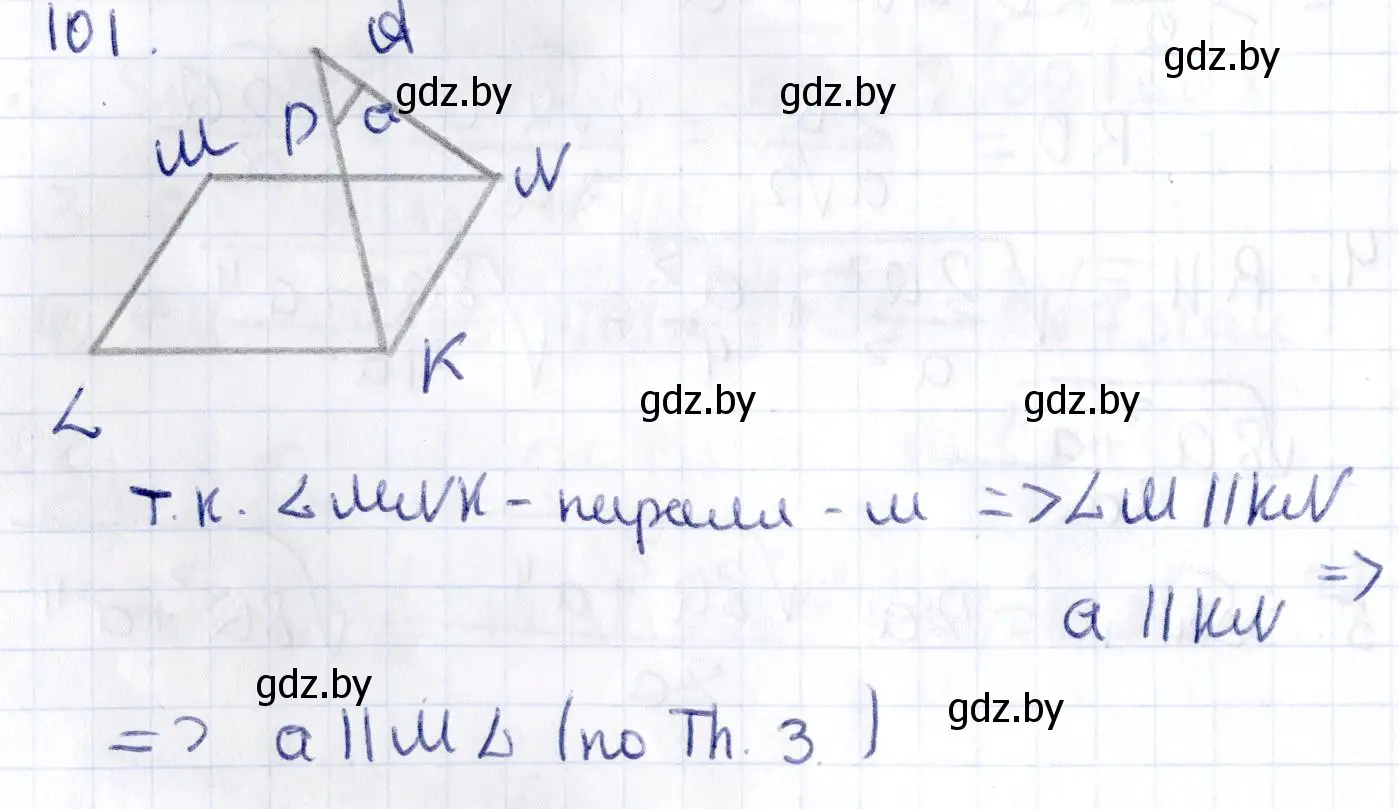 101.
A
gdz.by
gdz.by
gdz.by
M
D
a
N
K
L
gdz.by
gdz.by
т.к. LMNK - паралл - м => LM || KN
a || KN =>
gdz.by
gdz.by
=> a || ML (по Th. 3)